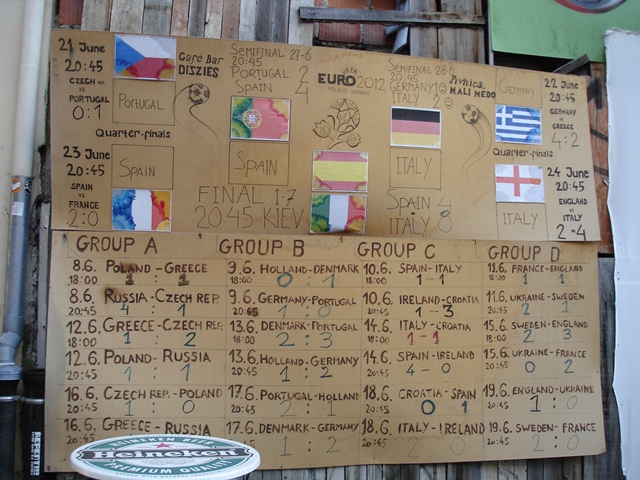 21 June
20:45
CZECH REP.
VS
PORTUGAL
0:1
PORTUGAL
Café Bar
DIZZIES
Quarter-finals
23 June
20:45
SPAIN
VS
FRANCE
2:0
SPAIN
SEMIFINAL 27-6
20:45
PORTUGAL 2
SPAIN 4
SPAIN
FINAL 1.7
20 45 KIEV
EURO 2012
POLAND UKRAINE
SEMIFINAL 28-6
20:45
GERMANY 1
ITALY 2
Pivnica
MALI MEDO
ITALY
SPAIN 4
ITALY
GERMANY
22 June
20:45
GERMANY
VS
GREECE
4:2
Quarter-finals
24 June
20:45
ENGLAND
VS
ITALY
2-4
ITALY
GROUP A
8.6. POLAND-GREECE
18:00 1 : 1
8.6. RUSSIA-CZECH REP.
20:45 4 : 1
12.6. GREECE-CZECH REP.
18:00 1 : 2
12.6. POLAND-RUSSIA
20:45 1 : 1
16.6. CZECH REP.-POLAND
20:45 1 : 0
16.6. GREECE-RUSSIA
GROUP B
9.6. HOLLAND-DENMARK
18:00 0 : 1
9.6. GERMANY-PORTUGAL
20:45 1 : 0
13.6. DENMARK-PORTUGAL
18:00 2 : 3
13.6. HOLLAND-GERMANY
20:45 1 : 2
17.6. PORTUGAL-HOLLAND
20:45 2 : 1
17.6. DENMARK-GERMANY
20:45 1 : 2
GROUP C
10.6. SPAIN-ITALY
18:00 1-1
10.6. IRELAND-CROATIA
20:45 1-3
14.6. ITALY-CROATIA
18:00 1-1
14.6. SPAIN-IRELAND
20:45 4-0
18.6. CROATIA-SPAIN
20:45 0 1
18.6. ITALY-IRELAND
20:45 2 0
GROUP D
11.6. FRANCE-ENGLAND
18:00 1 1
11.6. UKRAINE-SWEDEN
20:45 2 1
15.6. SWEDEN-ENGLAND
18:00 2 3
15.6. UKRAINE-FRANCE
20:45 0 2
19.6. ENGLAND-UKRAINE
20:45 1 : 0
19.6. SWEDEN-FRANCE
20:45 2 : 0
HEINEKEN BEER
Heineken
PREMIUM QUALITY
REPENT!!!